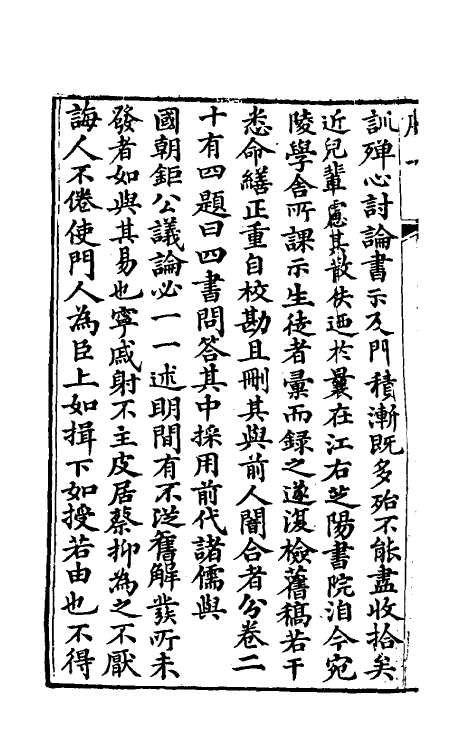 訓殫心討論書示及門積漸既多殆不能盡收拾矣
近兒輩慮其散佚迺於曩在江右芝陽書院洎今宛
陵學舍所課示生徒者彙而録之遂復檢舊稿若干
悉命繕正重自校勘且刪其與前人闇合者分卷二
十有四題曰四書問答其中採用前代諸儒與
國朝鉅公議論必一一述明間有不從舊解發所未
發者如與其易也寧戚射不主皮居蔡抑為之不厭
誨人不倦使門人為臣上如揖下如授若由也不得